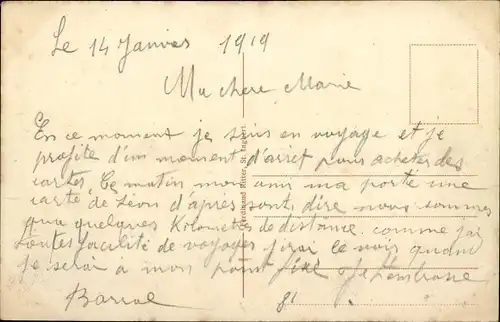 Le 14 Janvier 1919
Ma chere Marie
En ce moment je suis en voyage et je
profite d'un moment d'arret pour acheter des
cartes, Ce matin mon ami ma porté une
carte de Léon d'apres sont dire nous sommes
qua quelques Kilometres de distance comme j'ai
toutes facilité de voyager j'irai le voir quand
je serai à mon point fixe Je t'embrasse
Barral
Ferdinand Ritter, St. Ingbert.